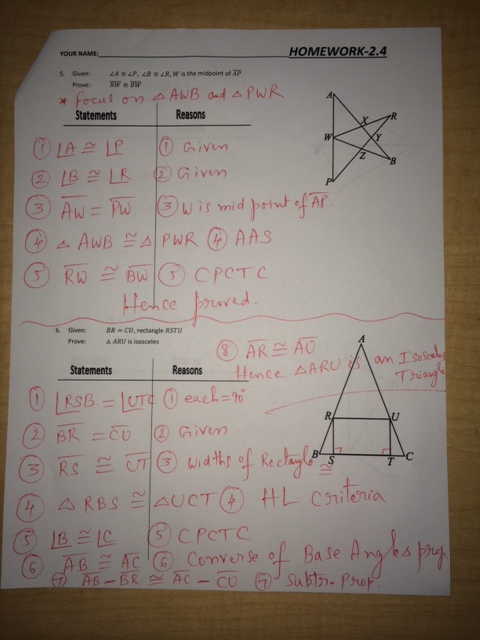 YOUR NAME: HOMEWORK-2.4
5. Given: ∠A ≅ ∠P, ∠B ≅ ∠R, W is the midpoint of AP
Prove: RW ≅ BW
* focus on △ AWB and △ PWR
Statements Reasons
① ∠A ≅ ∠P ① Given
② ∠B ≅ ∠R ② Given
③ AW = PW ③ W is mid point of AP.
④ △ AWB ≅ △ PWR ④ AAS
⑤ RW ≅ BW ⑤ CPCTC
Hence proved.
A
X
R
W
Y
Z
B
P
6. Given: BR = CU, rectangle RSTU
Prove: △ ARU is isosceles
⑧ AR ≅ AU
Hence △ARU is an Isosceles
Triangle
Statements Reasons
① ∠RSB = ∠UTC ① each = 90°
② BR = CU ② Given
③ RS ≅ UT ③ widths of Rectangle ≅
④ △ RBS ≅ △UCT ④ HL criteria
⑤ ∠B ≅ ∠C ⑤ CPCTC
⑥ AB ≅ AC ⑥ Converse of Base Angles prop.
⑦ AB - BR ≅ AC - CU ⑦ Subtr. Prop.
A
R U
B S T C